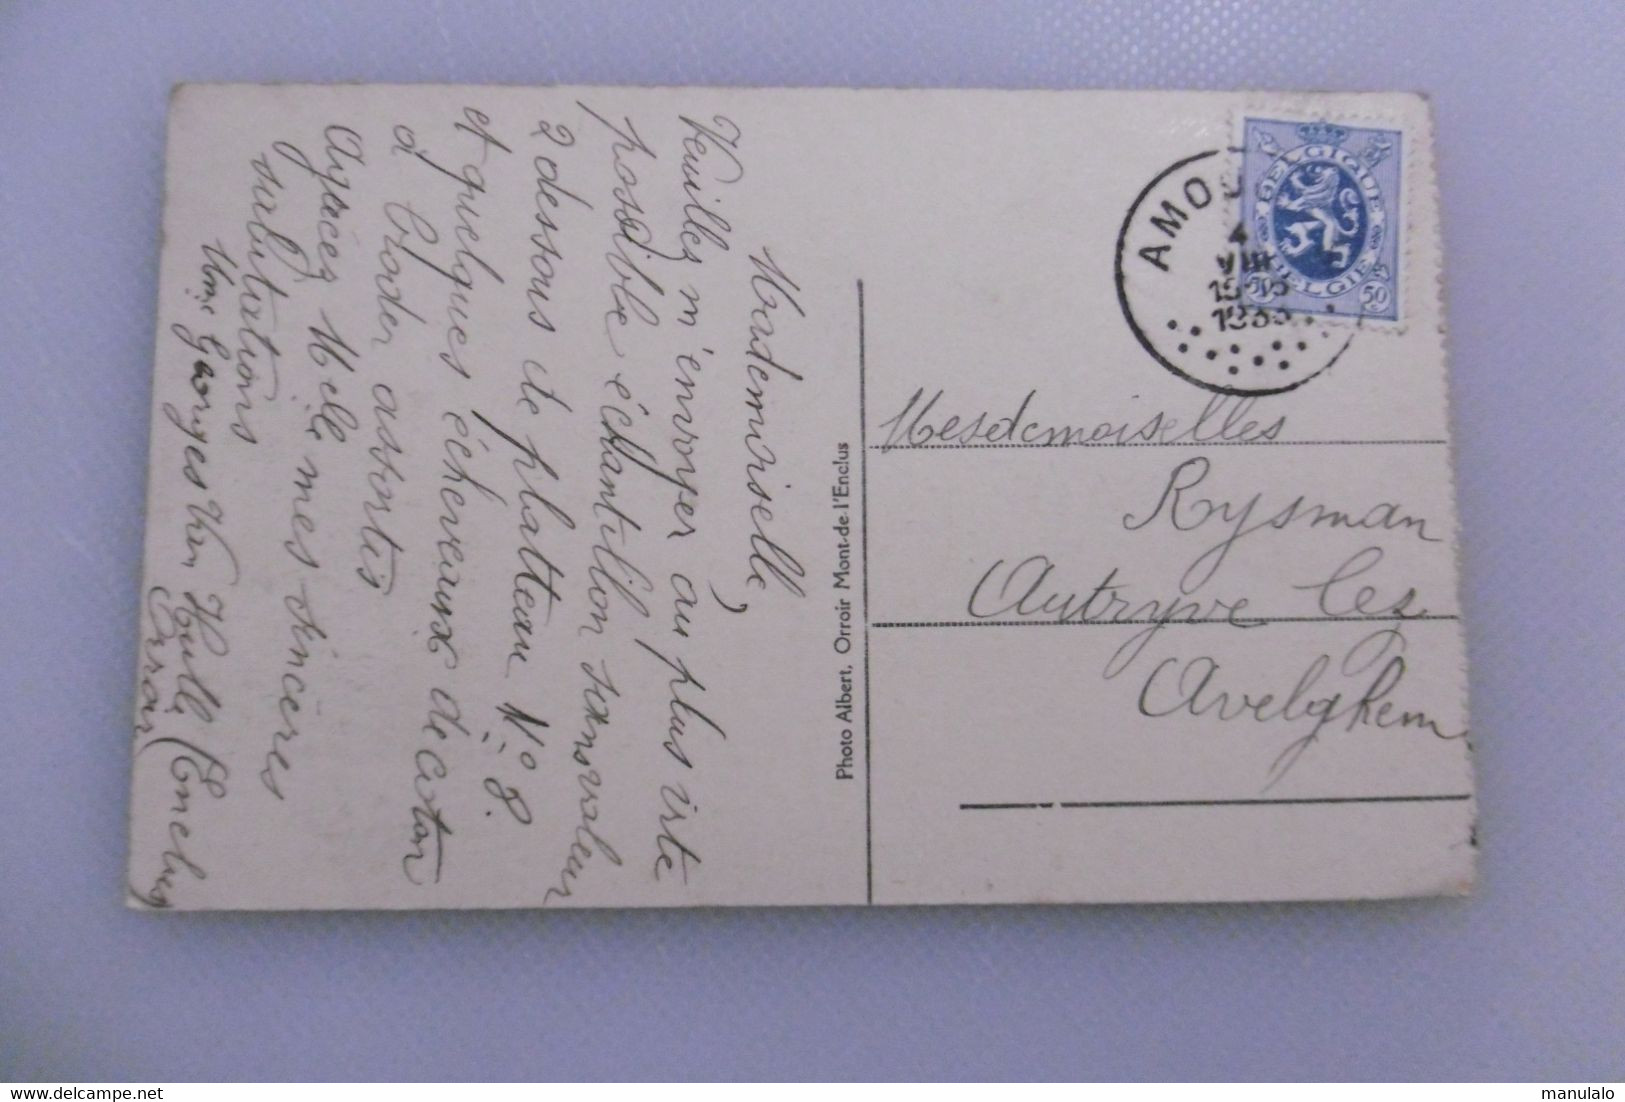 Mademoiselle,
Veuillez m'envoyer au plus vite
possible échantillon sans valeur
2 dessous de platteau N° 8.
et quelques écheveaux de coton
à broder assortis
Agréez Melle mes sincères
salutations
Mme Georges Van
Orroir
Photo Albert, Orroir Mont-de-l'Enclus
AMOU
4
VIII
1935
BELGIQUE
BELGIE
50
50
Mesdemoiselles
Rysman
Autryve lez
Avelghem
manulalo